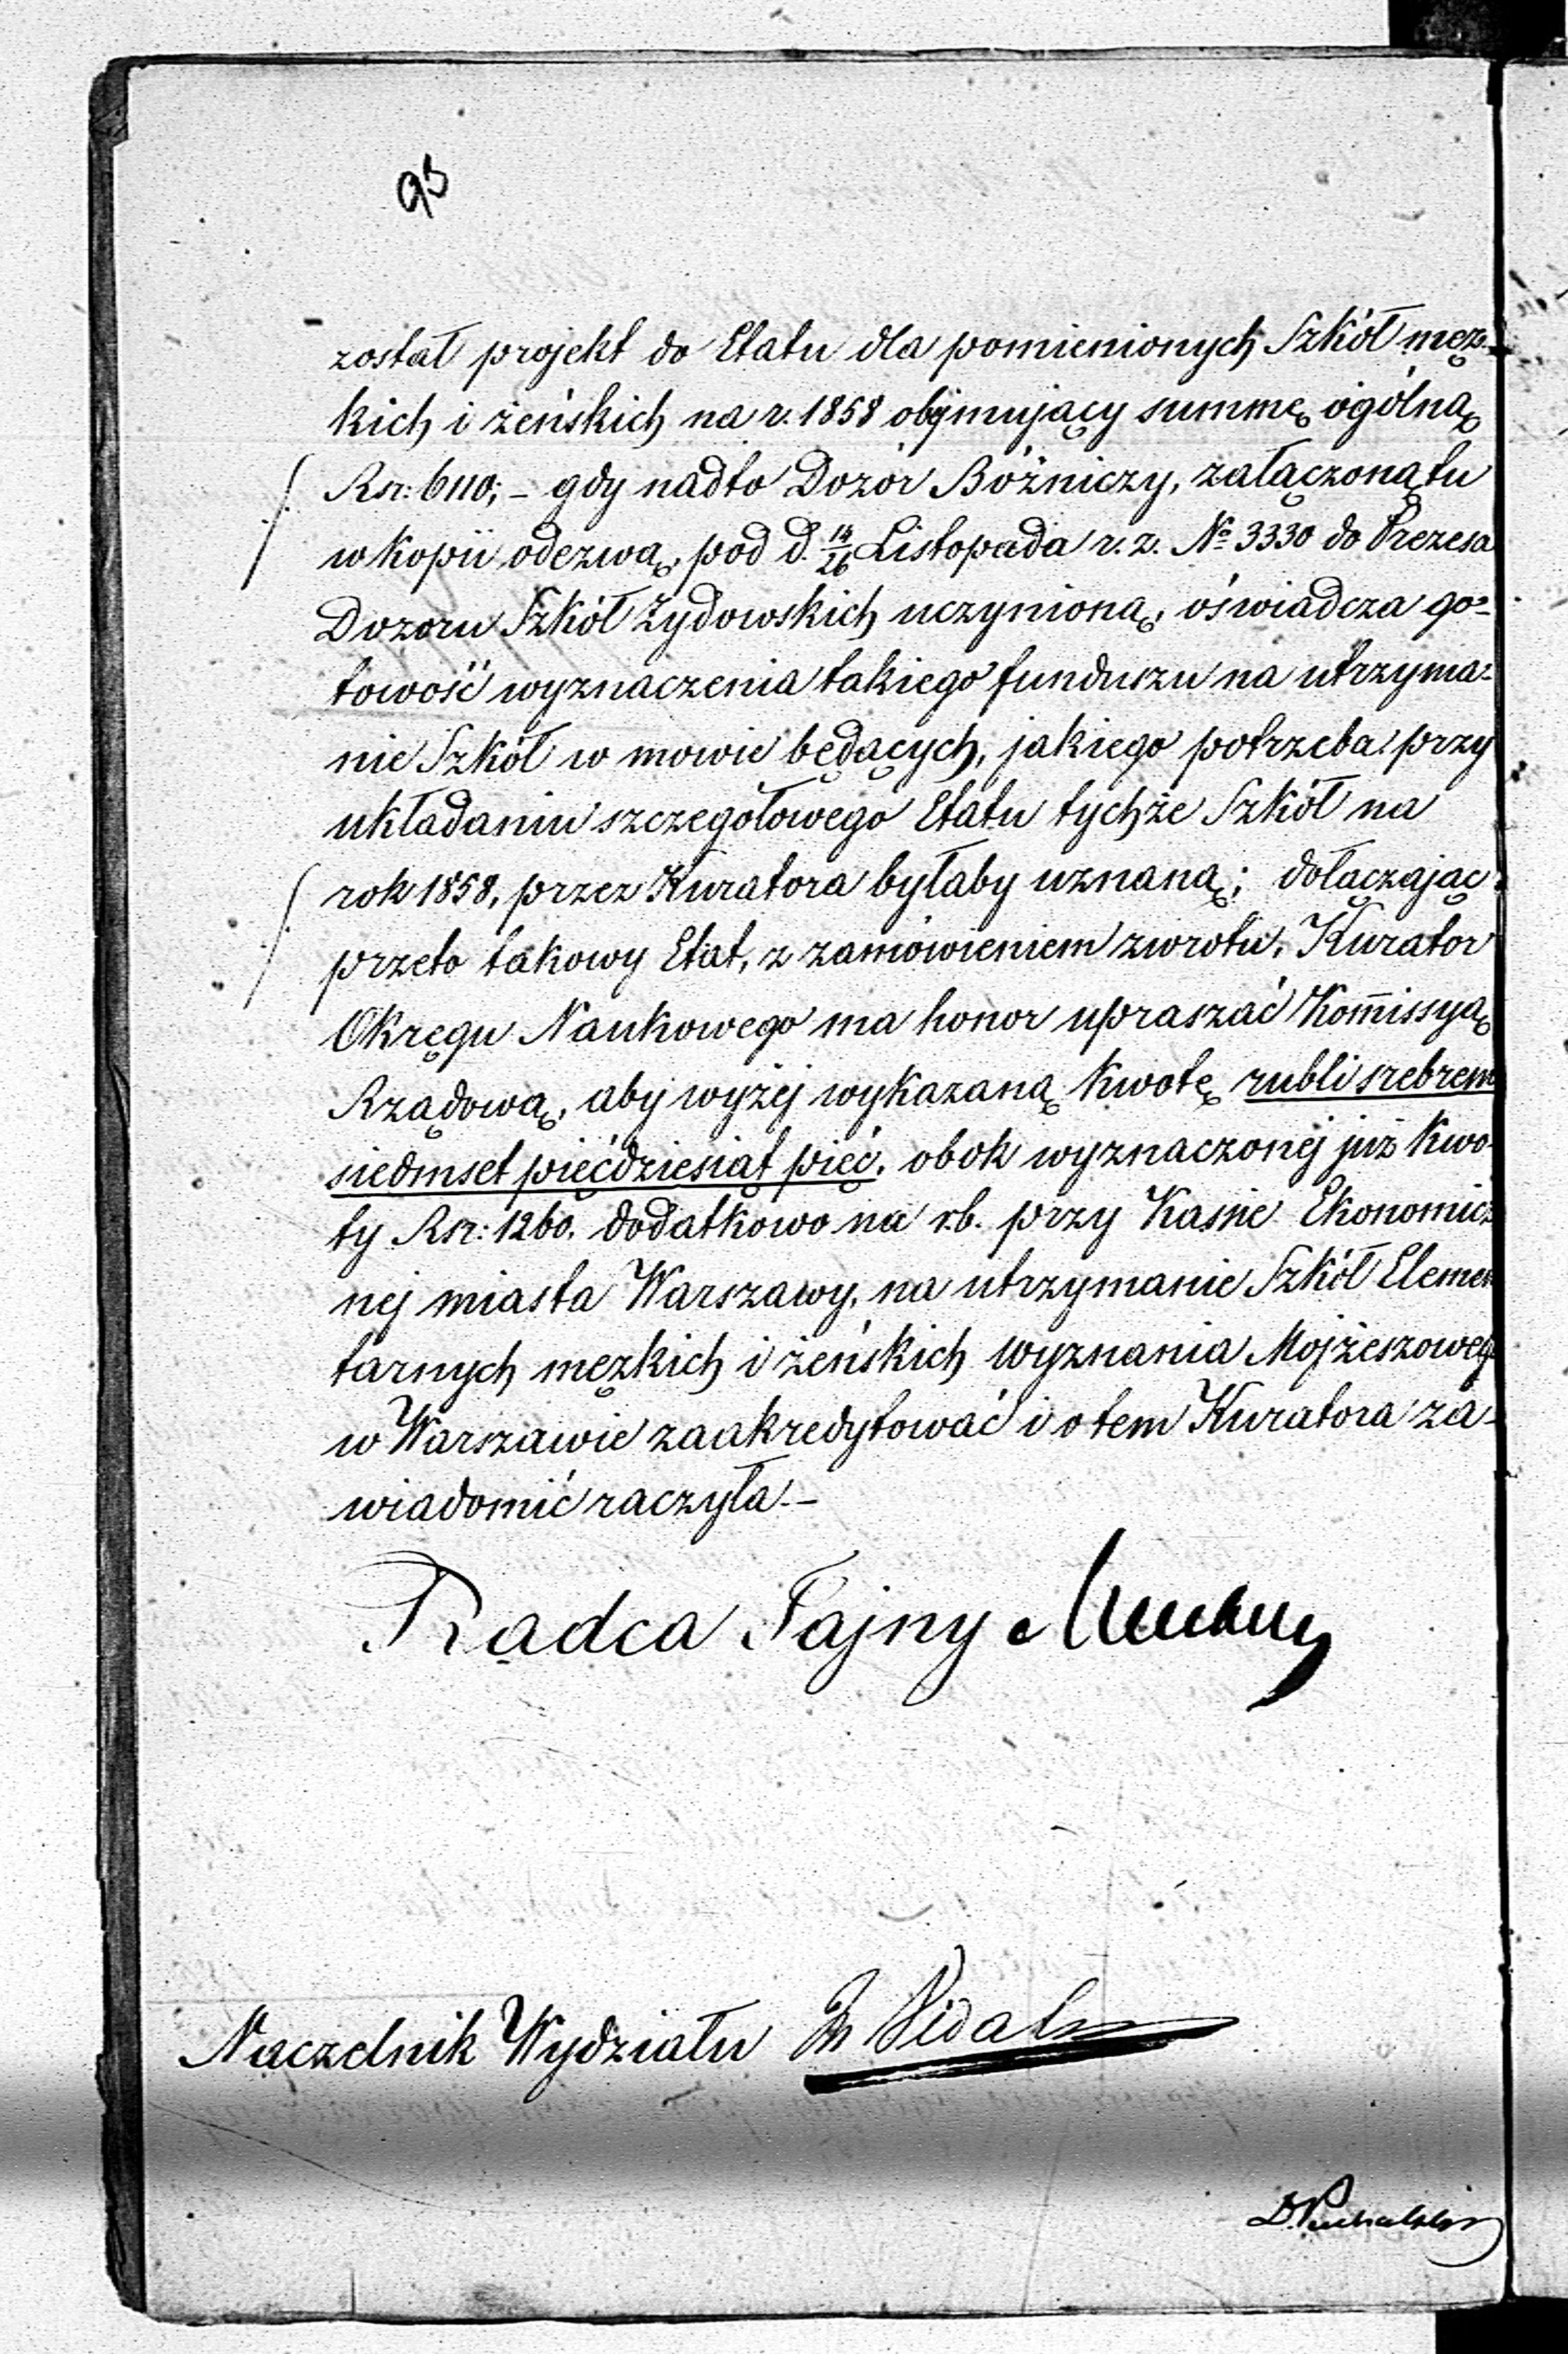 93
został projekt do Etatu dla pomienionych Szkół męz-
kich i żeńskich na r. 1858 obejmujący summę ogólną
Rsr: 6110; – gdy nadto Dozór Bóżniczy, załączoną tu
w kopii odezwą, pod d. 14/26 Listopada r. z. № 3330 do Prezesa
Dozoru Szkół Żydowskich uczynioną, oświadcza go-
towość wyznaczenia takiego funduszu na utrzyma-
nie Szkół w mowie będących, jakiego potrzeba przy
układaniu szczegółowego Etatu tychże Szkół na
rok 1858, przez Kuratora byłaby uznaną; dołączając
przeto takowy Etat, z zamówieniem zwrotu, Kurator
Okręgu Naukowego ma honor upraszać Kom̄issyą
Rządową, aby wyżej wykazaną kwotę rubli srebrem
siedmset pięćdziesiąt pięć, obok wyznaczonej już kwo-
ty Rsr: 1260. dodatkowo na r.b. przy Kasie Ekonomicz
nej miasta Warszawy, na utrzymanie Szkół Elemen
tarnych męzkich i żeńskich wyznania Mojżeszowego
w Warszawie zaakredytować i o tem Kuratora za-
wiadomić raczyła. –
Radca Tajny
Naczelnik Wydziału Vidal